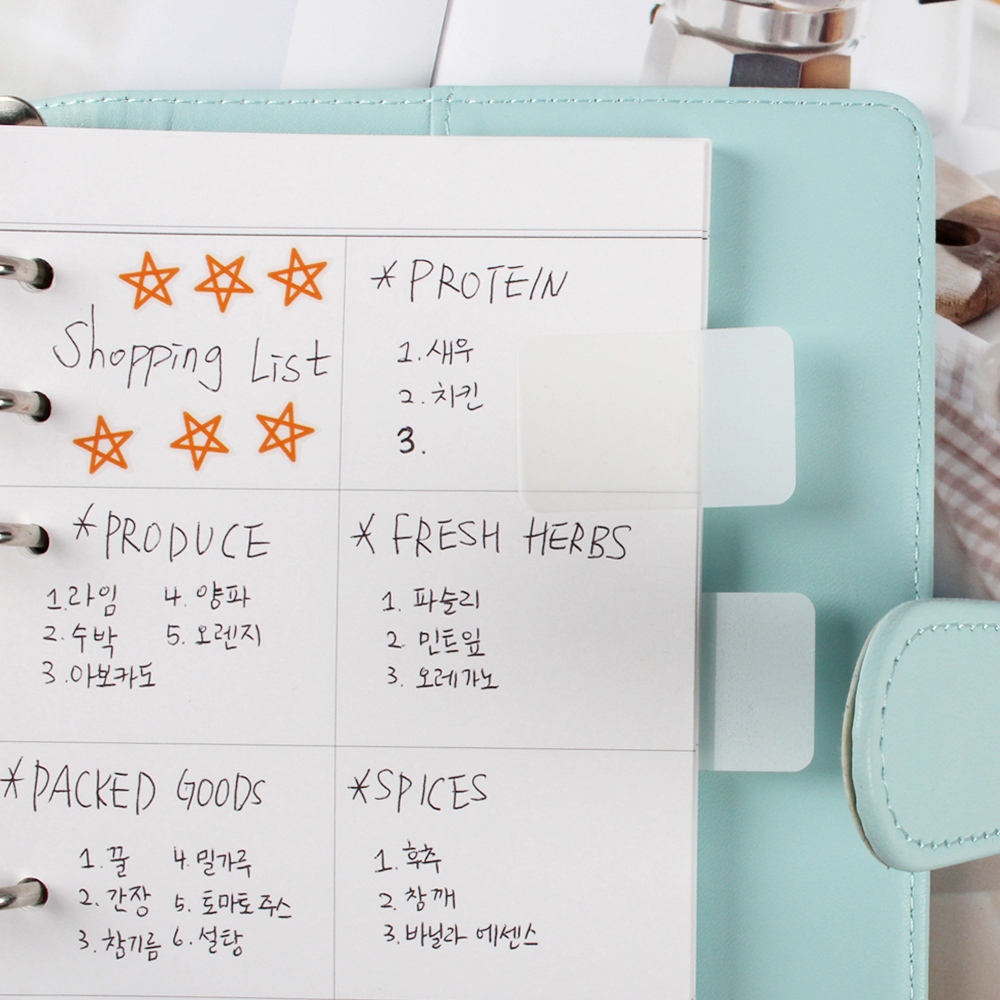 Shopping List
* PROTEIN
1. 새우
2. 치킨
3.
* PRODUCE
1. 라임 4. 양파
2. 수박 5. 오렌지
3. 아보카도
* FRESH HERBS
1. 파슬리
2. 민트잎
3. 오레가노
* PACKED GOODS
1. 꿀 4. 밀가루
2. 간장 5. 토마토주스
3. 참기름 6. 설탕
* SPICES
1. 후추
2. 참깨
3. 바닐라 에센스